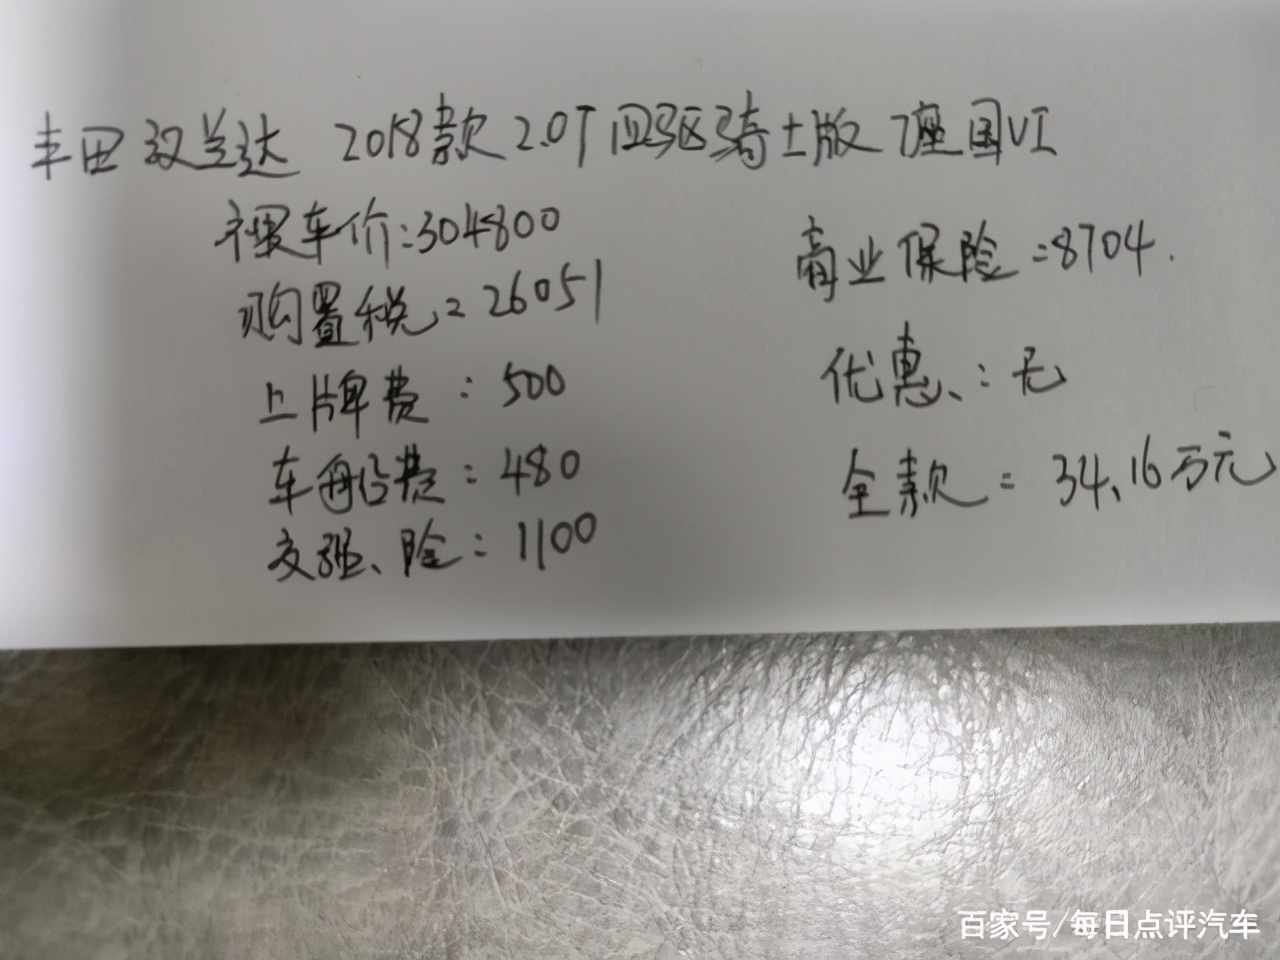 丰田汉兰达 2018款 2.0T 四驱骑士版 7座国VI
裸车价:304800
购置税=26051
上牌费:500
车船费:480
交强、险:1100
商业保险=8704.
优惠、:无
全款=34.16万元
百家号/每日点评汽车